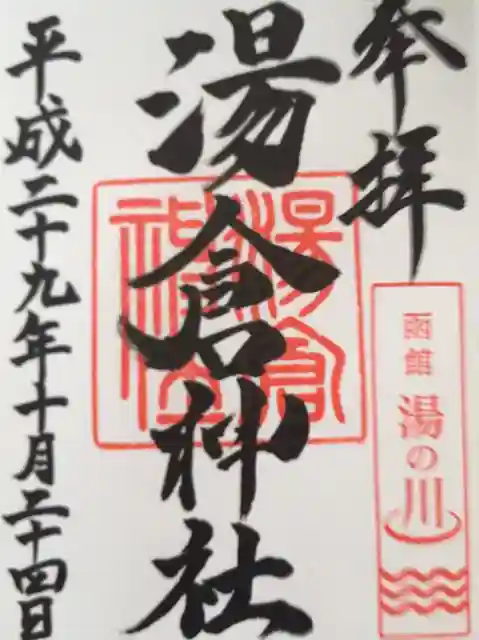 奉拝
函館 湯の川
湯倉神社
湯倉神社
平成二十九年十月二十四日